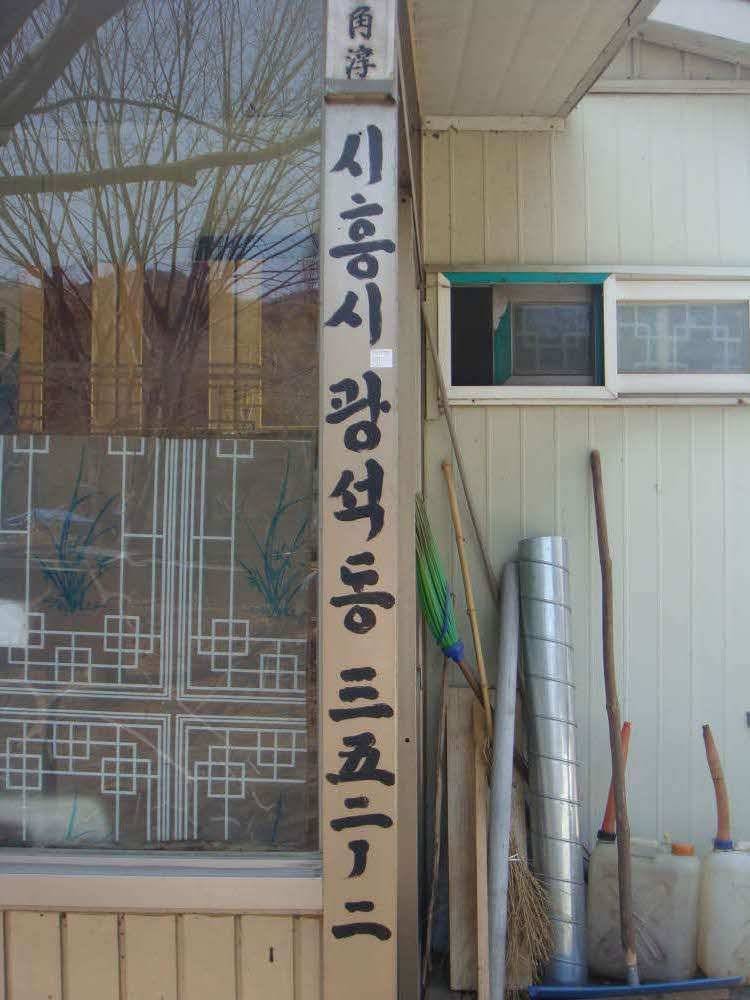 角淳
시흥시 광석동 三五二ノ二